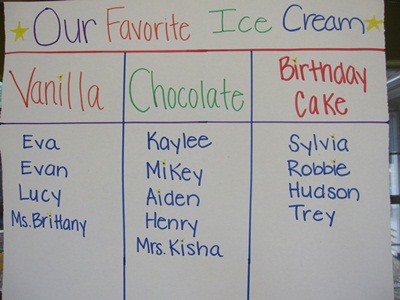 Our Favorite Ice Cream
Vanilla
Chocolate
Birthday
Cake
Eva
Evan
Lucy
Ms. Brittany
Kaylee
Mikey
Aiden
Henry
Mrs. Kisha
Sylvia
Robbie
Hudson
Trey